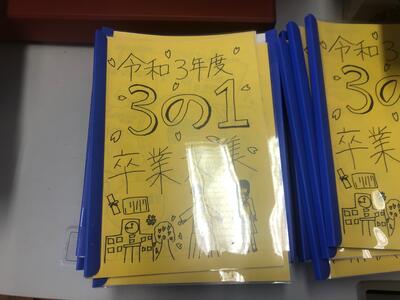 令和3年度
3の1
卒業文集
令和3
3の
卒業